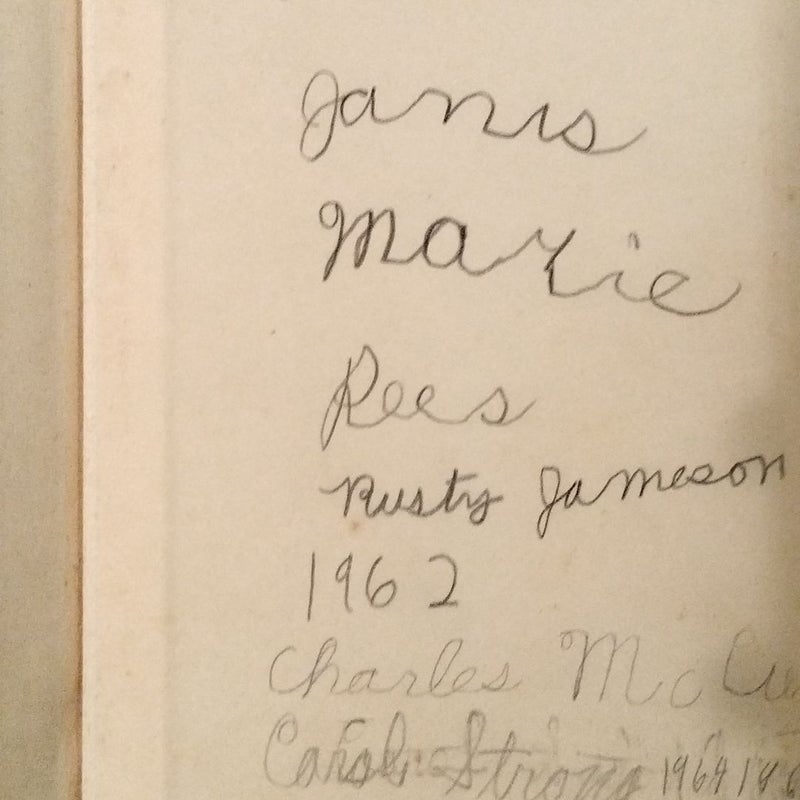 Janis
Marie
Rees
Rusty Jameson
1962
Charles Mc
Carol Strong 1964